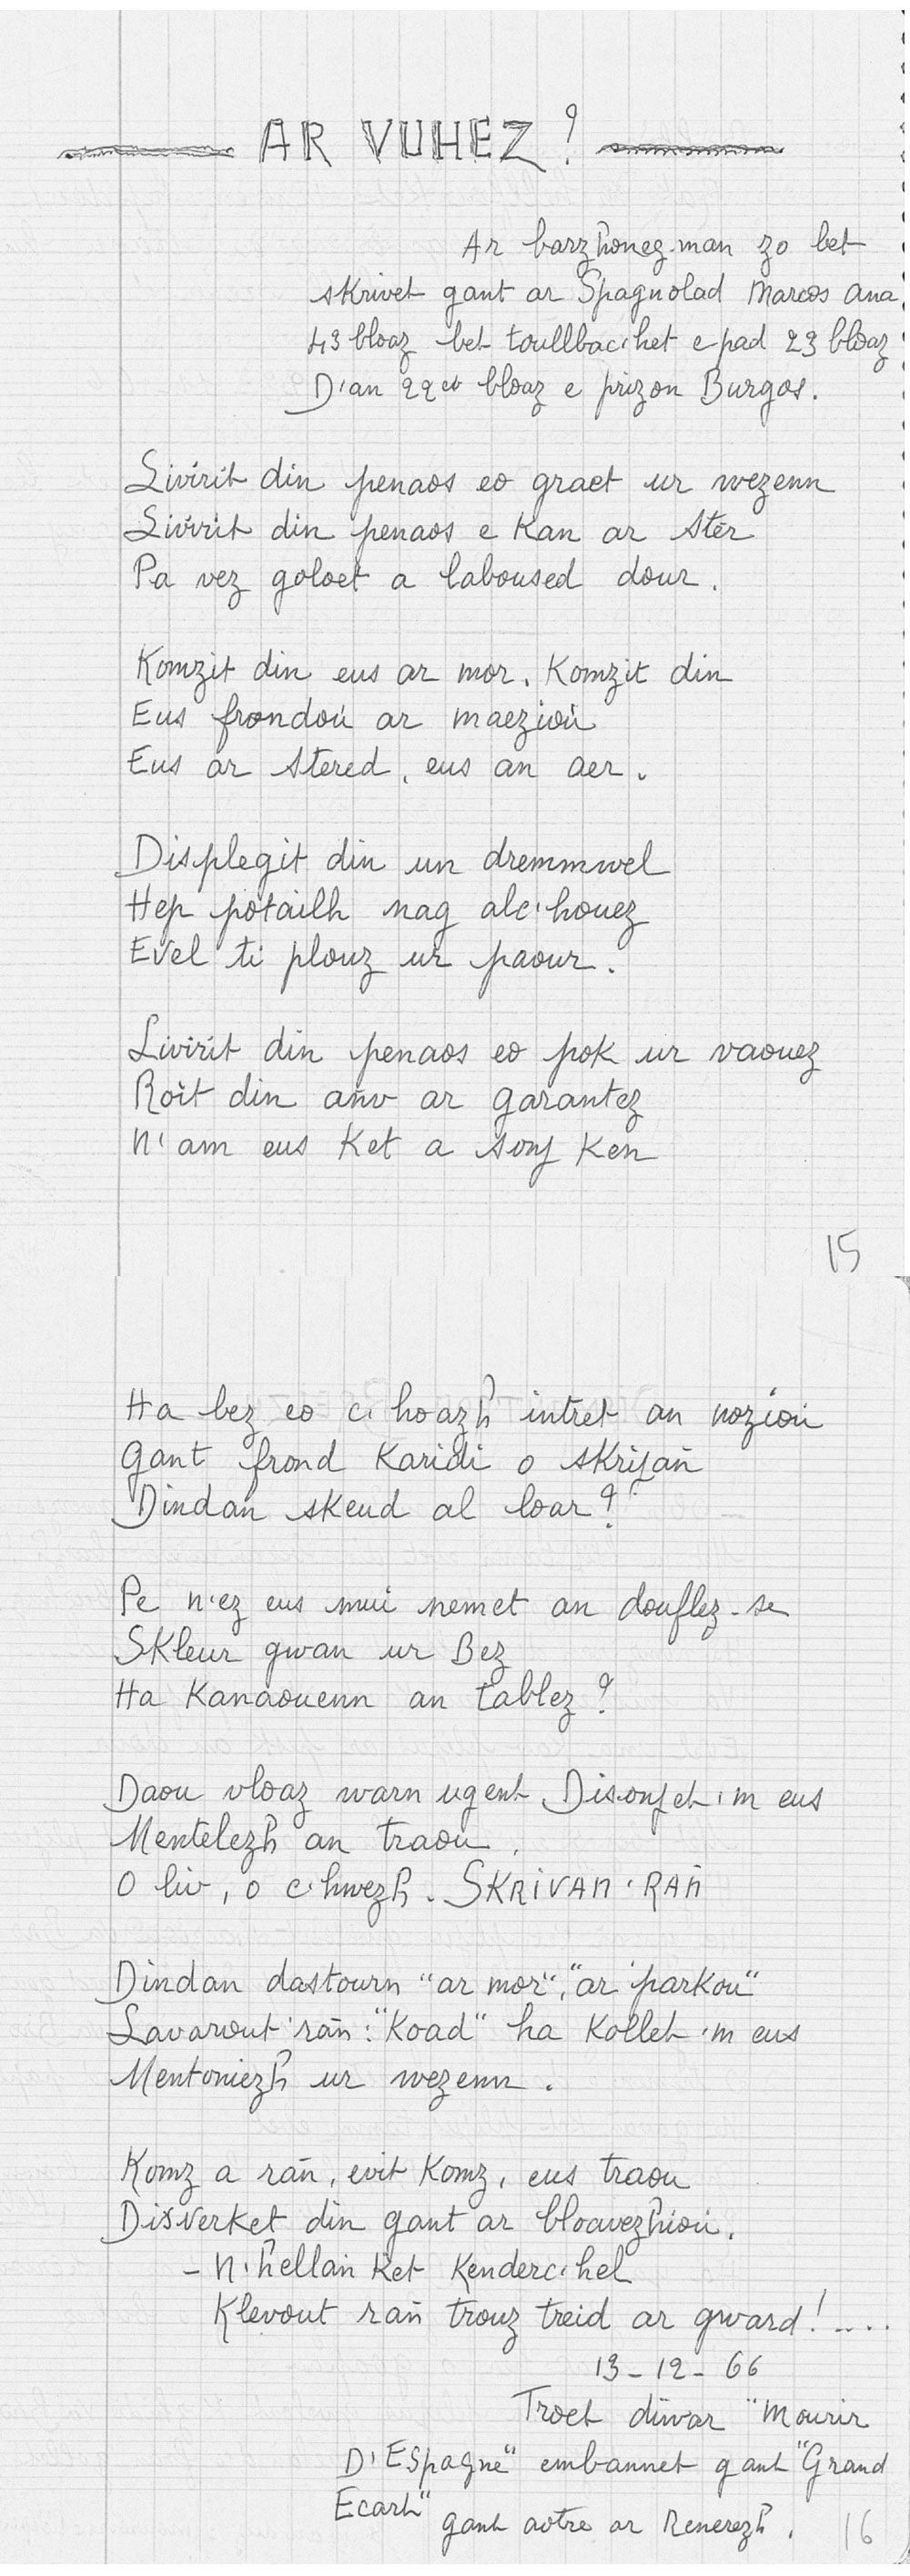 AR VUHEZ ?
Ar barzhoneg-man zo bet
skrivet gant ar Spagnolad Marcos Ana
43 bloaz bet toullbac'het e pad 23 bloaz
D'an 22et bloaz e prizon Burgos.
Livirit din penaos eo graet ur wezenn
Livirit din penaos e kan ar ster
Pa vez goloet a laboused dour.
Komzit din eus ar mor, Komzit din
Eus frondoù ar maezioù
Eus ar stered, eus an aer.
Displegit din un dremmwel
Hep potailh nag alc'houez
Evel ti plouz ur paour.
Livirit din penaos eo pok ur vaouez
Roit din anv ar garantez
N'am eus ket a sonj ken
15
Ha bez eo c'hoazh intret an nozioù
Gant frond karidi o skrijañ
Dindan skeud al loar ?
Pe n'ez eus mui nemet an douflez-se
Skleur gwan ur Bez
Ha Kanaouenn an tablez ?
Daou vloaz warn ugent Disonjet 'm eus
Mentelezh an traou.
O liv, o c'hwezh. SKRIVAN 'RAÑ
Dindan dastourn "ar mor", "ar parkou"
Lavarout 'rañ : "Koad" ha kollet 'm eus
Mentoniezh ur wezenn.
Komz a rañ, evit Komz, eus traou
Disverket din gant ar bloavezhioù.
- N'hellan ket Kenderc'hel
Klevout rañ trouz treid ar gward !....
13-12-66
Troet diwar "Mourir
D'Espagne" embannet gant "Grand
Ecart"
gant aotre ar Renerezh.
16